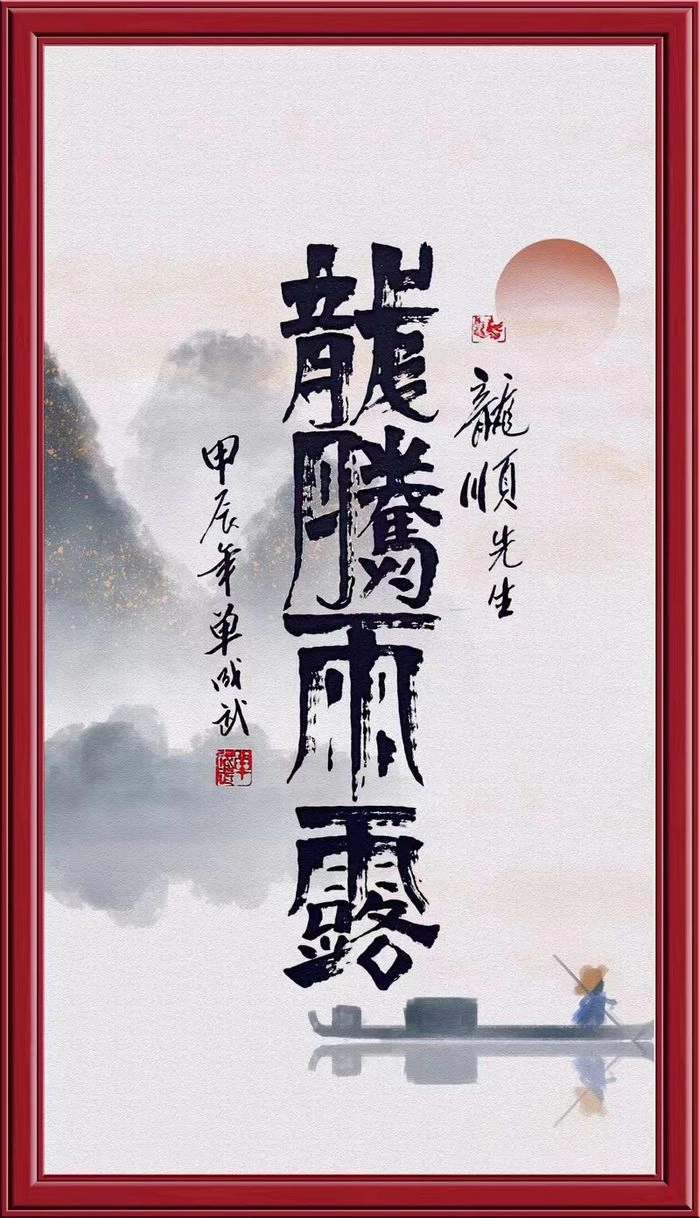 龍順先生
龍騰雨露
甲辰年单成武